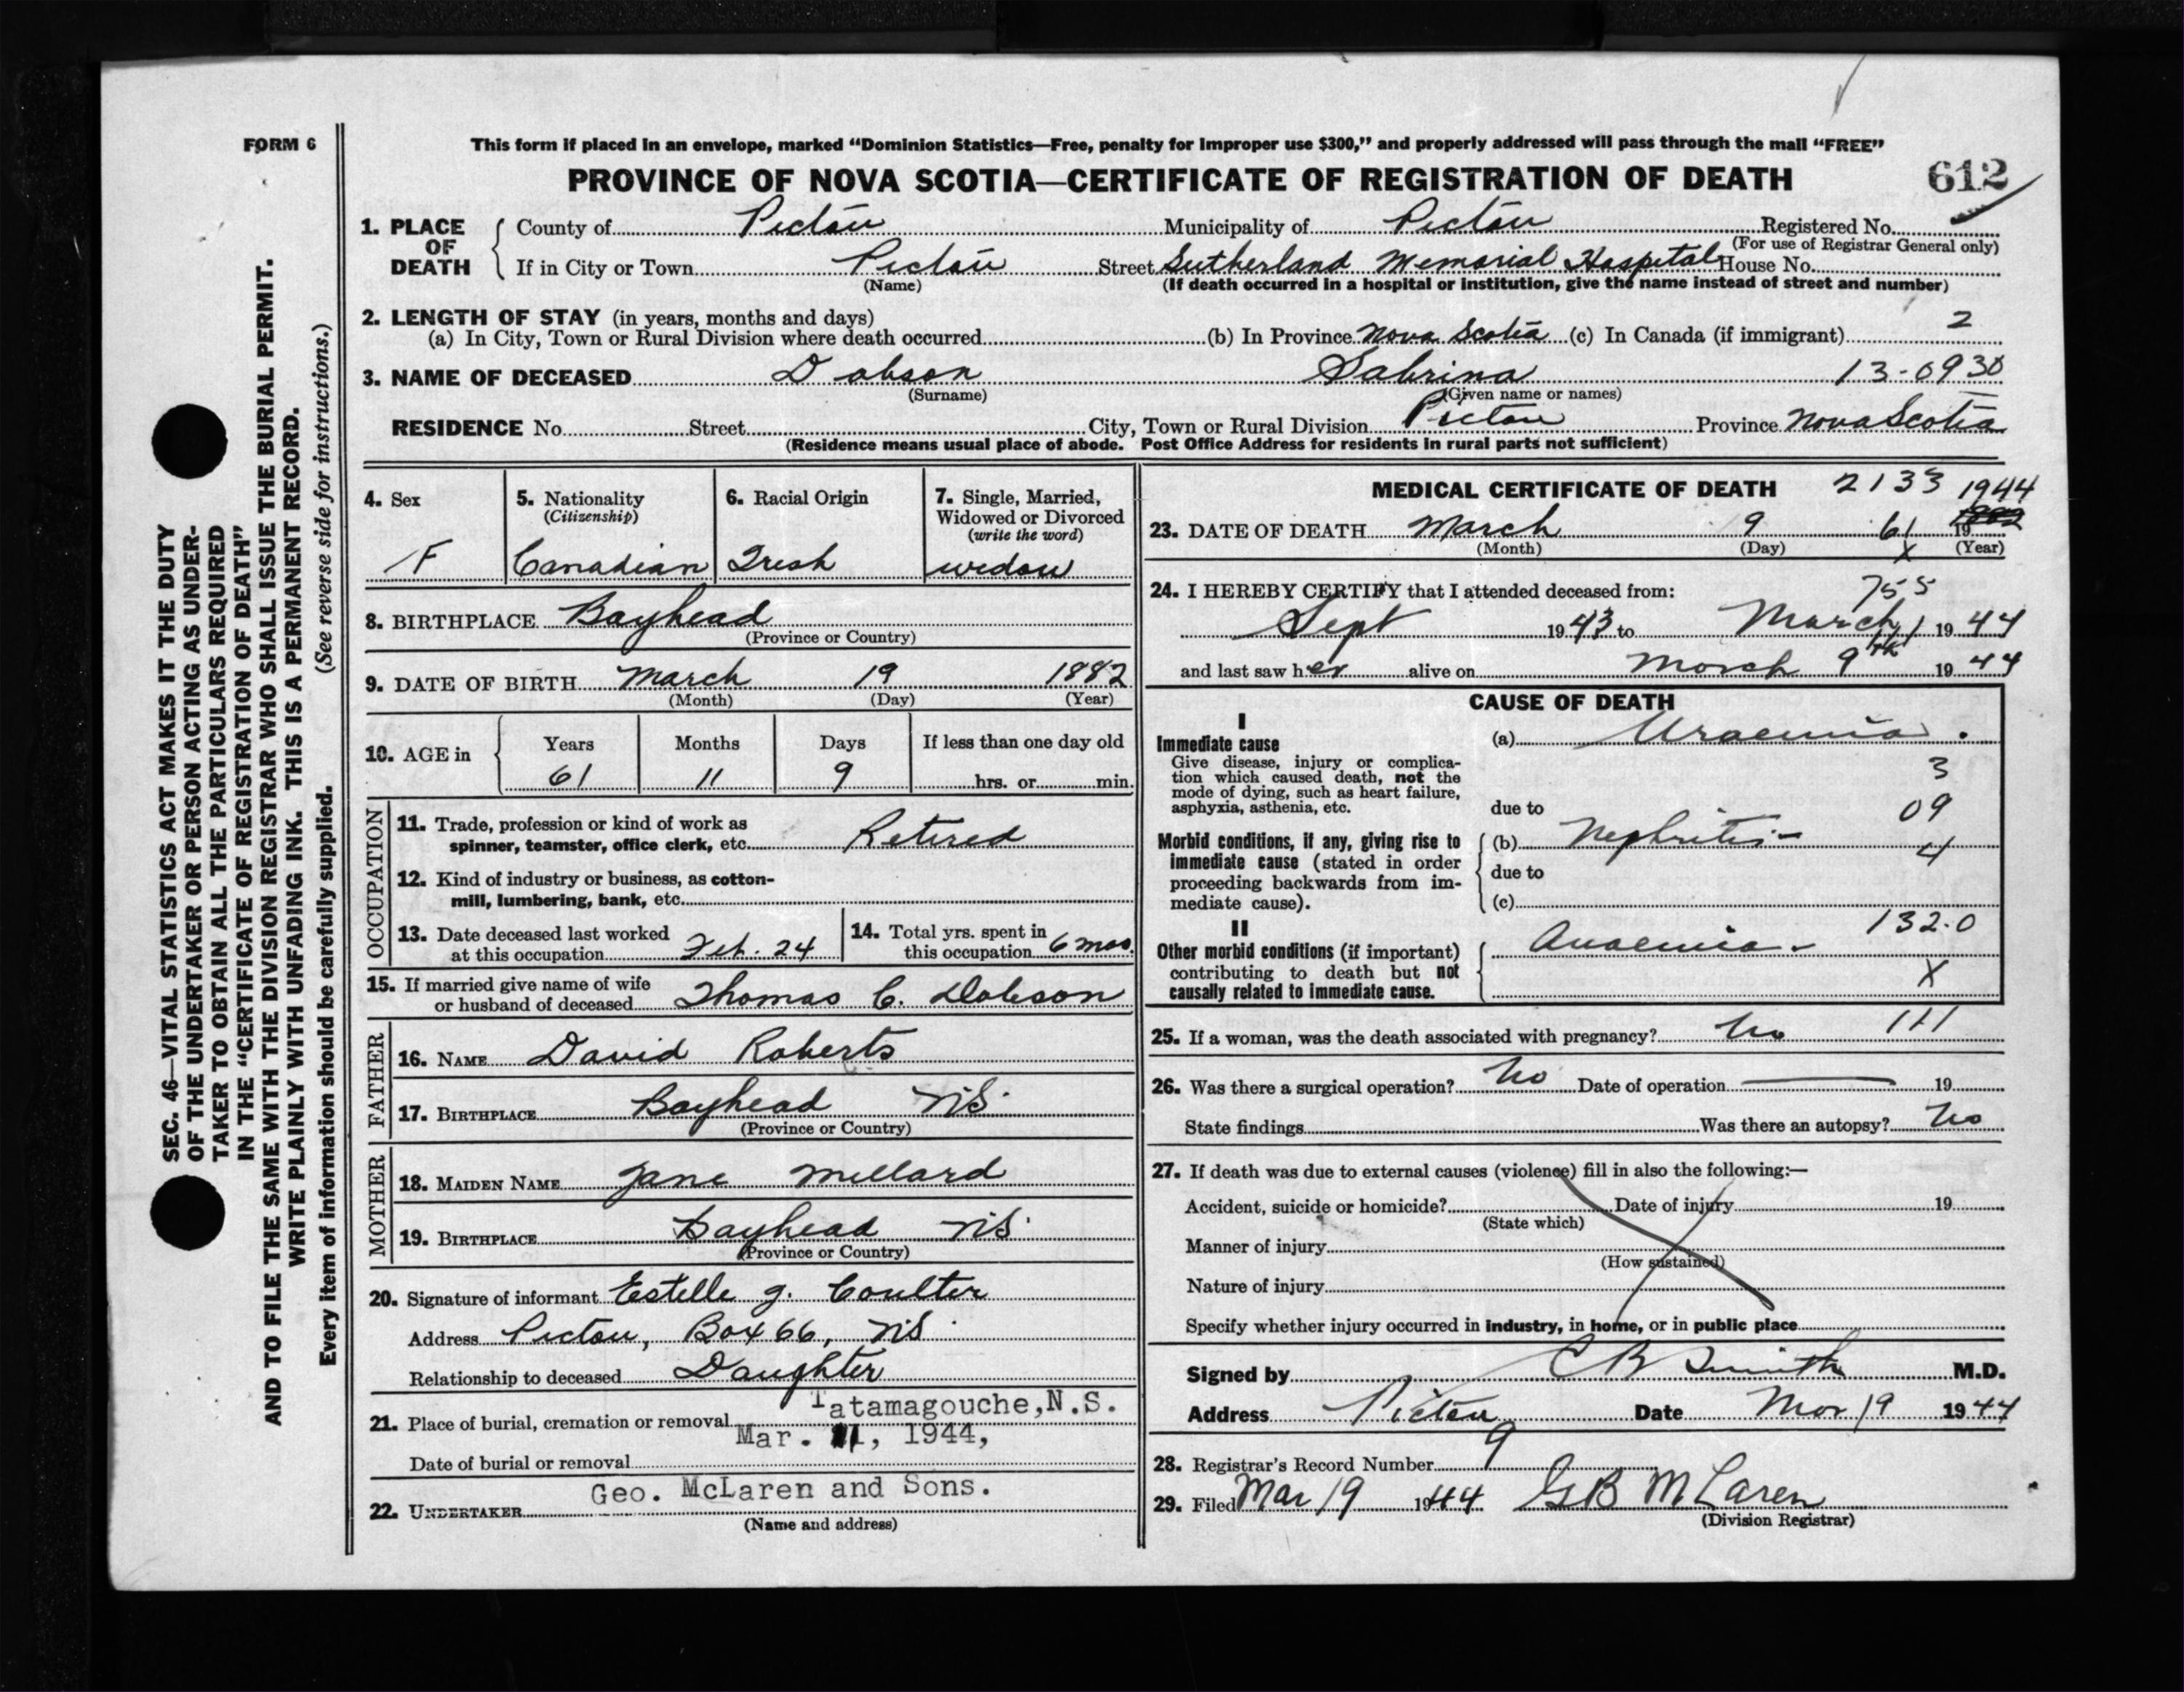 FORM 6
This form if placed in an envelope, marked “Dominion Statistics—Free, penalty for improper use $300,” and properly addressed will pass through the mail “FREE”
PROVINCE OF NOVA SCOTIA—CERTIFICATE OF REGISTRATION OF DEATH
612
1. PLACE OF DEATH
County of Pictou Municipality of Pictou Registered No.
(For use of Registrar General only)
If in City or Town Pictou Street Sutherland Memorial Hospital House No.
(Name) (If death occurred in a hospital or institution, give the name instead of street and number)
2. LENGTH OF STAY (in years, months and days)
(a) In City, Town or Rural Division where death occurred (b) In Province Nova Scotia (c) In Canada (if immigrant) 2
3. NAME OF DECEASED Dobson Sabrina 13-0930
(Surname) (Given name or names)
RESIDENCE No. Street City, Town or Rural Division Pictou Province Nova Scotia
(Residence means usual place of abode. Post Office Address for residents in rural parts not sufficient)
4. Sex
F
5. Nationality
(Citizenship)
Canadian
6. Racial Origin
Irish
7. Single, Married,
Widowed or Divorced
(write the word)
widow
8. BIRTHPLACE Bayhead
(Province or Country)
9. DATE OF BIRTH March 19 1882
(Month) (Day) (Year)
10. AGE in
Years Months Days If less than one day old
61 11 9 hrs. or min.
OCCUPATION
11. Trade, profession or kind of work as
spinner, teamster, office clerk, etc. Retired
12. Kind of industry or business, as cotton-
mill, lumbering, bank, etc.
13. Date deceased last worked
at this occupation Feb. 24
14. Total yrs. spent in
this occupation 6 mos.
15. If married give name of wife
or husband of deceased Thomas C. Dobson
FATHER
16. NAME David Roberts
17. BIRTHPLACE Bayhead N.S.
(Province or Country)
MOTHER
18. MAIDEN NAME Jane Millard
19. BIRTHPLACE Bayhead N.S.
(Province or Country)
20. Signature of informant Estelle J. Coulter
Address Pictou, Box 66, N.S.
Relationship to deceased Daughter
21. Place of burial, cremation or removal Tatamagouche,N.S.
Mar. 11, 1944,
Date of burial or removal
Geo. McLaren and Sons.
22. UNDERTAKER
(Name and address)
MEDICAL CERTIFICATE OF DEATH 2133 1944
23. DATE OF DEATH March 9 61 19
(Month) (Day) X (Year)
24. I HEREBY CERTIFY that I attended deceased from: 755
Sept 1943 to March 1944
and last saw her alive on March 9th 1944
CAUSE OF DEATH
I
Immediate cause
Give disease, injury or complica-
tion which caused death, not the
mode of dying, such as heart failure,
asphyxia, asthenia, etc.
(a) Uraemia.
3
due to 09
Morbid conditions, if any, giving rise to
immediate cause (stated in order
proceeding backwards from im-
mediate cause).
(b) Nephritis-
4
due to
(c)
132.0
II
Other morbid conditions (if important)
contributing to death but not
causally related to immediate cause.
Anaemia-
X
25. If a woman, was the death associated with pregnancy? No 111
26. Was there a surgical operation? No Date of operation 19
State findings Was there an autopsy? No
27. If death was due to external causes (violence) fill in also the following:—
Accident, suicide or homicide? Date of injury 19
(State which)
Manner of injury
(How sustained)
Nature of injury
Specify whether injury occurred in industry, in home, or in public place
Signed by C B Smith M.D.
Address Pictou Date Mar 19 1944
28. Registrar's Record Number 9
29. Filed Mar 19 1944 G B McLaren
(Division Registrar)
SEC. 46—VITAL STATISTICS ACT MAKES IT THE DUTY
OF THE UNDERTAKER OR PERSON ACTING AS UNDER-
TAKER TO OBTAIN ALL THE PARTICULARS REQUIRED
IN THE “CERTIFICATE OF REGISTRATION OF DEATH”
AND TO FILE THE SAME WITH THE DIVISION REGISTRAR WHO SHALL ISSUE THE BURIAL PERMIT.
WRITE PLAINLY WITH UNFADING INK. THIS IS A PERMANENT RECORD.
Every item of information should be carefully supplied. (See reverse side for instructions.)